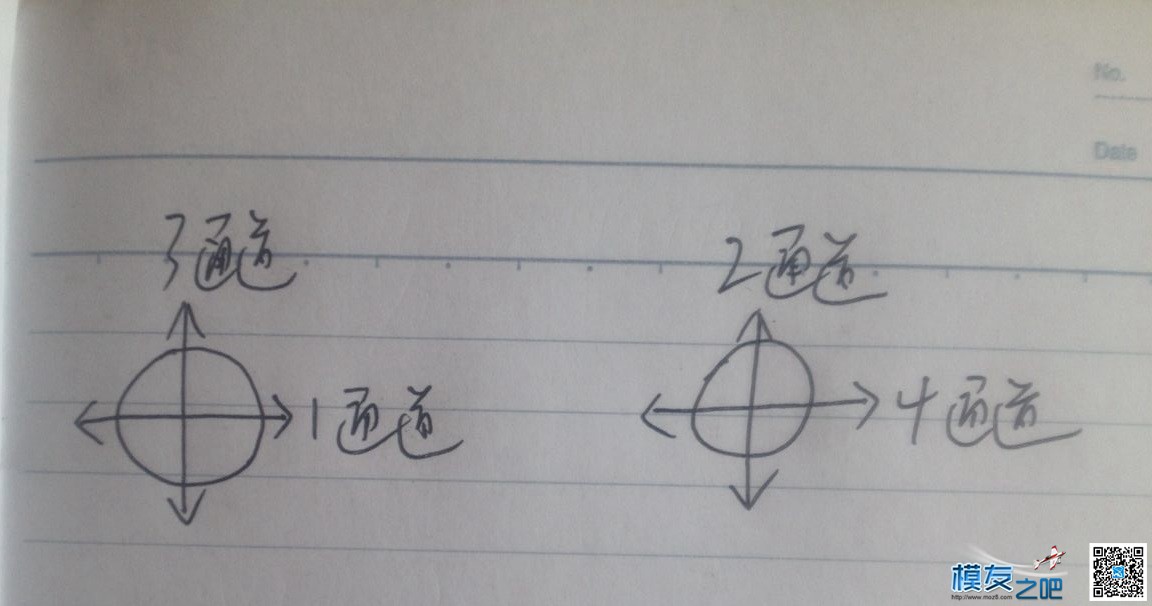 No.
Date
3通道
2通道
1通道
4通道
模友之吧
http://www.moz8.com